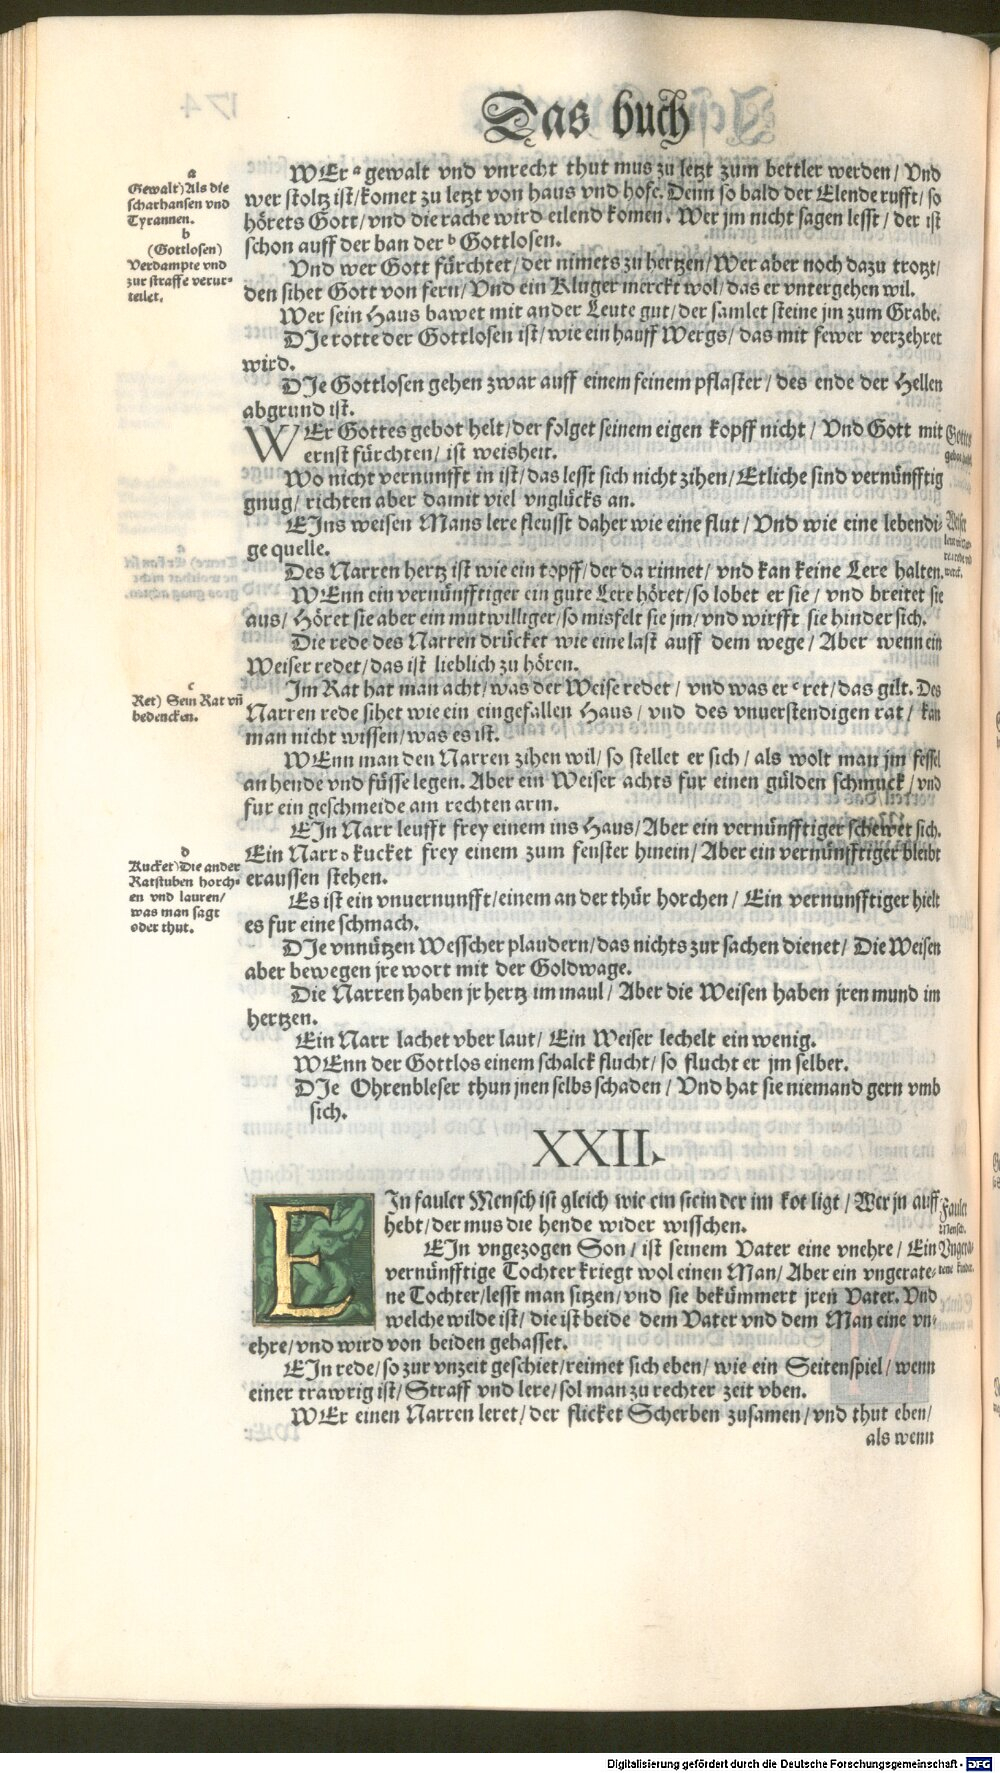 Das buch
a
Gewalt) Als die
scharhansen vnd
Tyrannen.
b
(Gottlosen)
Verdampte vnd
zur straffe verur-
teilet.
WEr a gewalt vnd vnrecht thut mus zu letzt zum bettler werden/ Vnd
wer stoltz ist/ komet zu letzt von haus vnd hofe. Denn so bald der Elende rufft/ so
hörets Gott/ vnd die rache wird eilend komen. Wer jm nicht sagen lesst/ der ist
schon auff der ban der b Gottlosen.
Vnd wer Gott fürchtet/ der nimets zu hertzen/ Wer aber noch dazu trotzt/
den sihet Gott von fern/ Vnd ein Kluger merckt wol/ das er vntergehen wil.
Wer sein Haus bawet mit ander Leute gut/ der samlet steine jm zum Grabe.
DJe rotte der Gottlosen ist/ wie ein hauff Wergs/ das mit fewer verzehret
wird.
DJe Gottlosen gehen zwar auff einem feinem pflaster/ des ende der Hellen
abgrund ist.
WEr Gottes gebot helt/ der folget seinem eigen kopff nicht/ Vnd Gott mit
ernst fürchten/ ist weisheit.
Wo nicht vernunfft in ist/ das lesst sich nicht zihen/ Etliche sind vernünfftig
gnug/ richten aber damit viel vnglücks an.
EJns weisen Mans lere fleusst daher wie eine flut/ Vnd wie eine lebendi-
ge quelle.
Des Narren hertz ist wie ein topff/ der da rinnet/ vnd kan keine Lere halten.
WEnn ein vernünfftiger ein gute Lere höret/ so lobet er sie/ vnd breitet sie
aus/ Höret sie aber ein mutwilliger/ so misfelt sie jm/ vnd wirfft sie hinder sich.
Die rede des Narren drücket wie eine last auff dem wege/ Aber wenn ein
Weiser redet/ das ist lieblich zu hören.
c
Ret) Sein Rat vñ
bedencken.
Jm Rat hat man acht/ was der Weise redet/ vnd was er c ret/ das gilt. Des
Narren rede sihet wie ein eingefallen Haus/ vnd des vnuerstendigen rat/ kan
man nicht wissen/ was es ist.
WEnn man den Narren zihen wil/ so stellet er sich/ als wolt man jm fessel
an hende vnd füsse legen. Aber ein Weiser achts fur einen gülden schmuck/ vnd
fur ein geschmeide am rechten arm.
EJn Narr leufft frey einem ins Haus/ Aber ein vernünfftiger schewet sich.
d
Kucket) Die ander
Ratstuben horch-
en vnd lauren/
was man sagt
oder thut.
Ein Narr d kucket frey einem zum fenster hinein/ Aber ein vernünfftiger bleibt
eraussen stehen.
Es ist ein vnuernunfft/ einem an der thür horchen/ Ein vernunfftiger hielt
es fur eine schmach.
DJe vnnützen Wesscher plaudern/ das nichts zur sachen dienet/ Die Weisen
aber bewegen jre wort mit der Goldwage.
Die Narren haben jr hertz im maul/ Aber die Weisen haben jren mund im
hertzen.
Ein Narr lachet vber laut/ Ein Weiser lechelt ein wenig.
WEnn der Gottlos einem schalck flucht/ so flucht er jm selber.
DJe Ohrenbleser thun jnen selbs schaden/ Vnd hat sie niemand gern vmb
sich.
XXII.
EJn fauler Mensch ist gleich wie ein stein der im kot ligt/ Wer jn auff
hebt/ der mus die hende wider wisschen.
EJn vngezogen Son/ ist seinem Vater eine vnehre/ Ein
vernünfftige Tochter kriegt wol einen Man/ Aber ein vngerate-
ne Tochter/ lesst man sitzen/ vnd sie bekümmert jren Vater. Vnd
welche wilde ist/ die ist beide dem Vater vnd dem Man eine vn-
ehre/ vnd wird von beiden gehasset.
EJn rede/ so zur vnzeit geschiet/ reimet sich eben/ wie ein Seitenspiel/ wenn
einer trawrig ist/ Straff vnd lere/ sol man zu rechter zeit vben.
WEr einen Narren leret/ der flicket Scherben zusamen/ vnd thut eben/
als wenn
Fauler
Mensch.
Digitalisierung gefördert durch die Deutsche Forschungsgemeinschaft - DFG